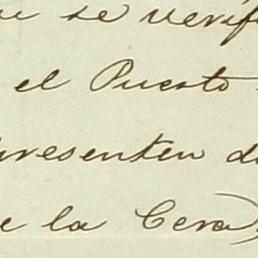 ue se verif
el Puerto
presenten d
e la Cera